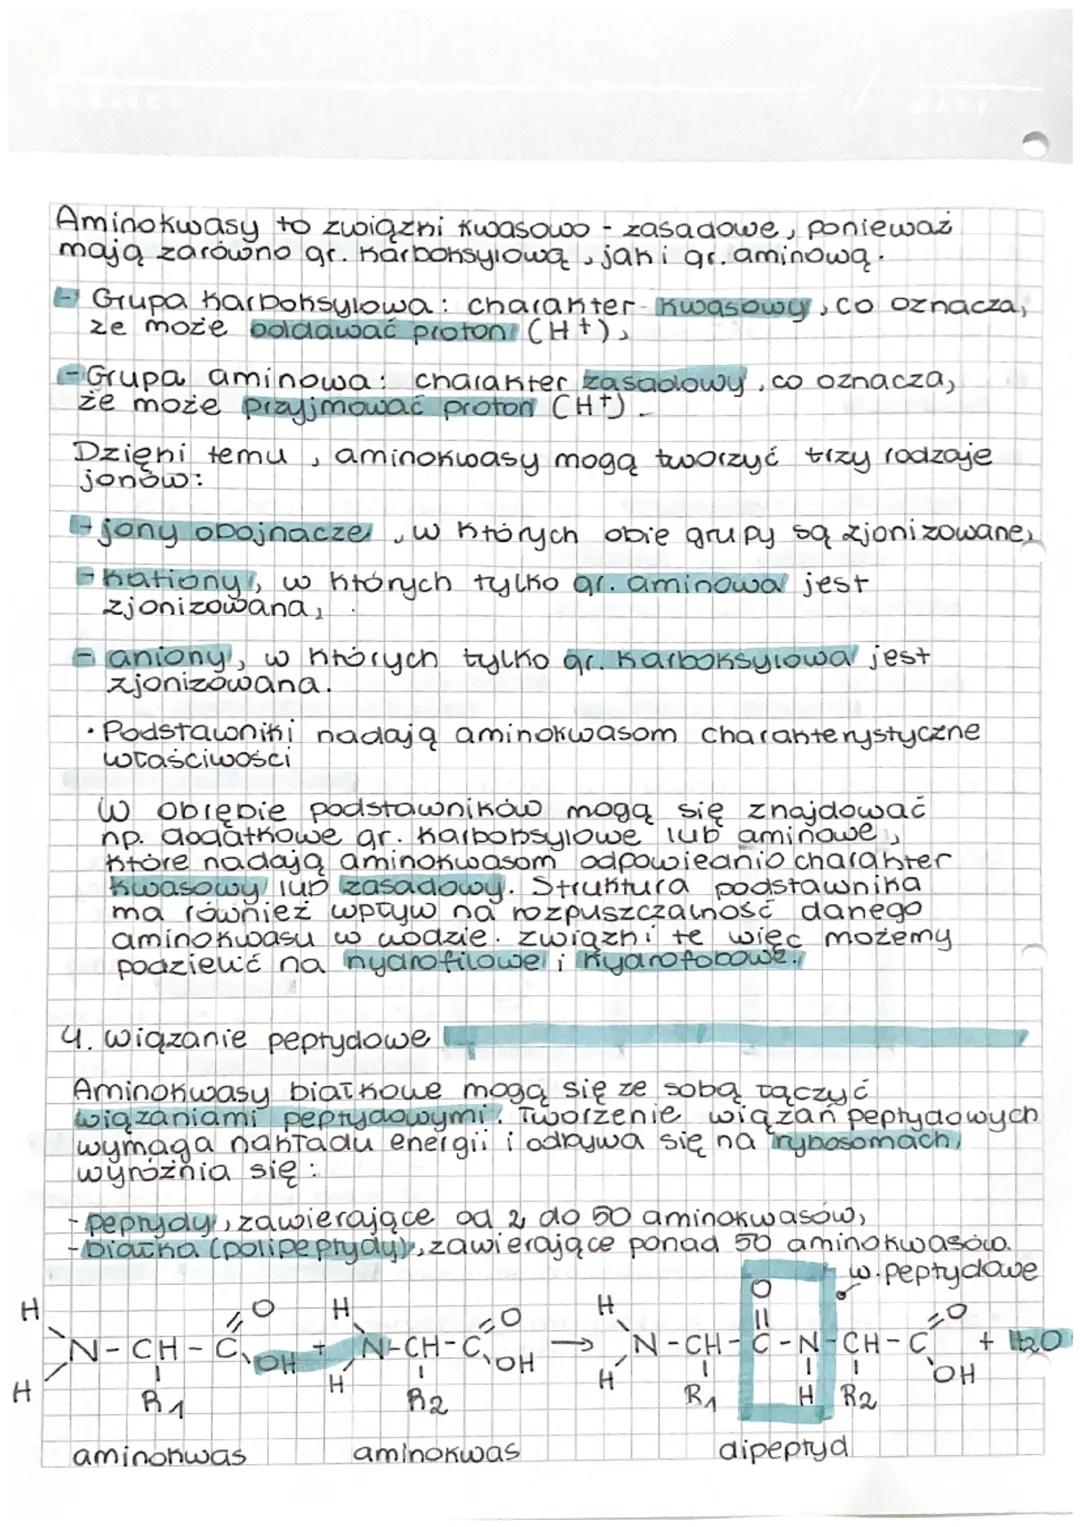 Aminokwasy to związki kwasowo - zasadowe, ponieważ
mają zarówno gr. karboksylową, jak i gr. aminową.
- Grupa karboksylowa: charakter kwasowy, co oznacza,
że może oddawać proton (H+),
- Grupa aminowa: charakter zasadowy, co oznacza,
że może przyjmować proton (H+).
Dzięki temu, aminokwasy mogą tworzyć trzy rodzaje
jonów:
- jony obojnacze, w których obie grupy są zjonizowane,
- kationy, w których tylko gr. aminowa jest
zjonizowana,
- aniony, w których tylko gr. karboksylowa jest
zjonizowana.
• Podstawniki nadają aminokwasom charakterystyczne
właściwości
W obrębie podstawników mogą się znajdować
np. dodatkowe gr. karboksylowe lub aminowe,
które nadają aminokwasom odpowiednio charakter
kwasowy lub zasadowy. Struktura podstawnika
ma również wpływ na rozpuszczalność danego
aminokwasu w wodzie. Związki te więc możemy
podzielić na hydrofilowe i hydrofobowe.
4. Wiązanie peptydowe
Aminokwasy białkowe mogą się ze sobą łączyć
wiązaniami peptydowymi. Tworzenie wiązań peptydowych
wymaga nakładu energii i odbywa się na rybosomach,
wyróżnia się:
- peptydy, zawierające od 2 do 50 aminokwasów,
- białka (polipeptydy), zawierające ponad 50 aminokwasów.
w. peptydowe
H O H O H O O
N - CH - C + N - CH - C → N - CH - C - N - CH - C + H2O
H OH H OH H H OH
R1 R2 R1 R2
aminokwas aminokwas dipeptyd